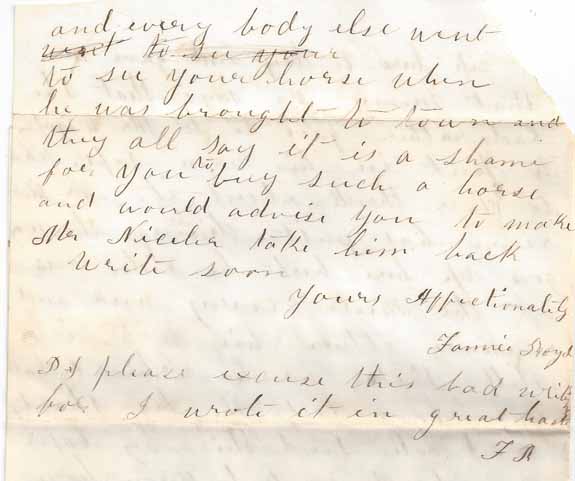 and every body else went
went to see your
to see your horse when
he was brought to town and
they all say it is a shame
for you to buy such a horse
and would advise you to make
Mr take him back
Write soon
Yours Affectionately
Fannie Boyd
P.S please excuse this bad writing
for I wrote it in great haste
F B